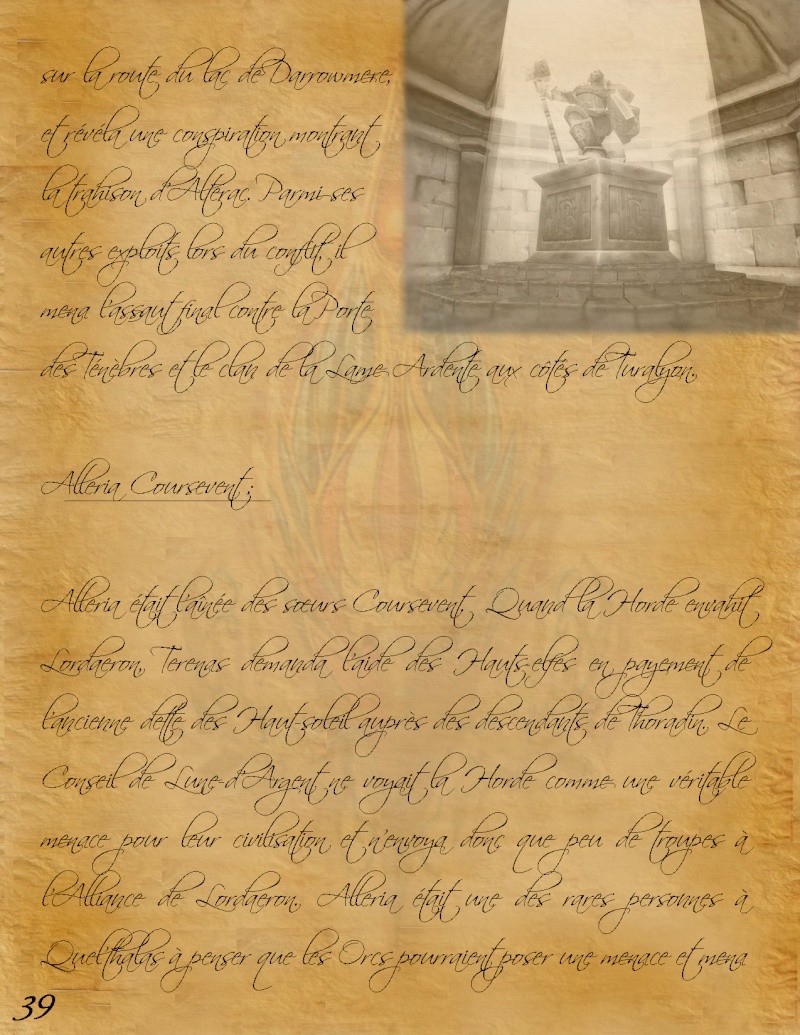 sur la route du lac de Darrowmere,
et révéla une conspiration montrant
la trahison d'Alterac. Parmi ses
autres exploits lors du conflit, il
mena l'assaut final contre la Porte
des Ténèbres et le clan de la Lame Ardente aux côtés de Turalyon.
Alleria Coursevent :
Alleria était l'aînée des sœurs Coursevent. Quand la Horde envahit
Lordaeron, Terenas demanda l'aide des Hauts-elfes en payement de
l'ancienne dette des Haut-soleil auprès des descendants de Thoradin. Le
Conseil de Lune-d'Argent ne voyait la Horde comme une véritable
menace pour leur civilisation et n'envoya donc que peu de troupes à
l'Alliance de Lordaeron. Alleria était une des rares personnes à
Quel'thalas à penser que les Orcs pourraient poser une menace et mena
39